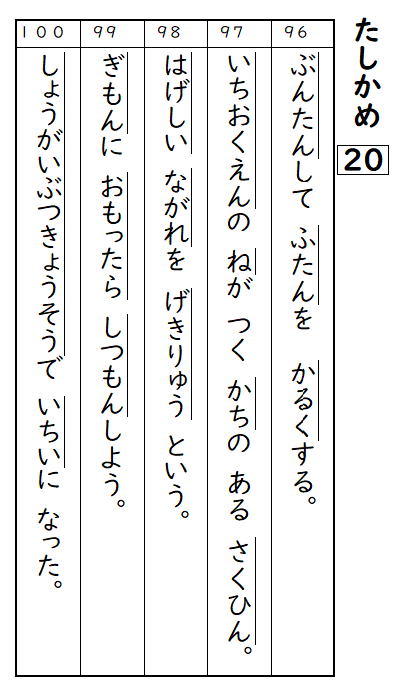 たしかめ
20
96
ぶんたんして ふたんを かるくする。
97
いちおくえんの ねが つく かちの ある さくひん。
98
はげしい ながれを げきりゅう という。
99
ぎもんに おもったら しつもんしよう。
100
しょうがいぶつきょうそうで いちいに なった。